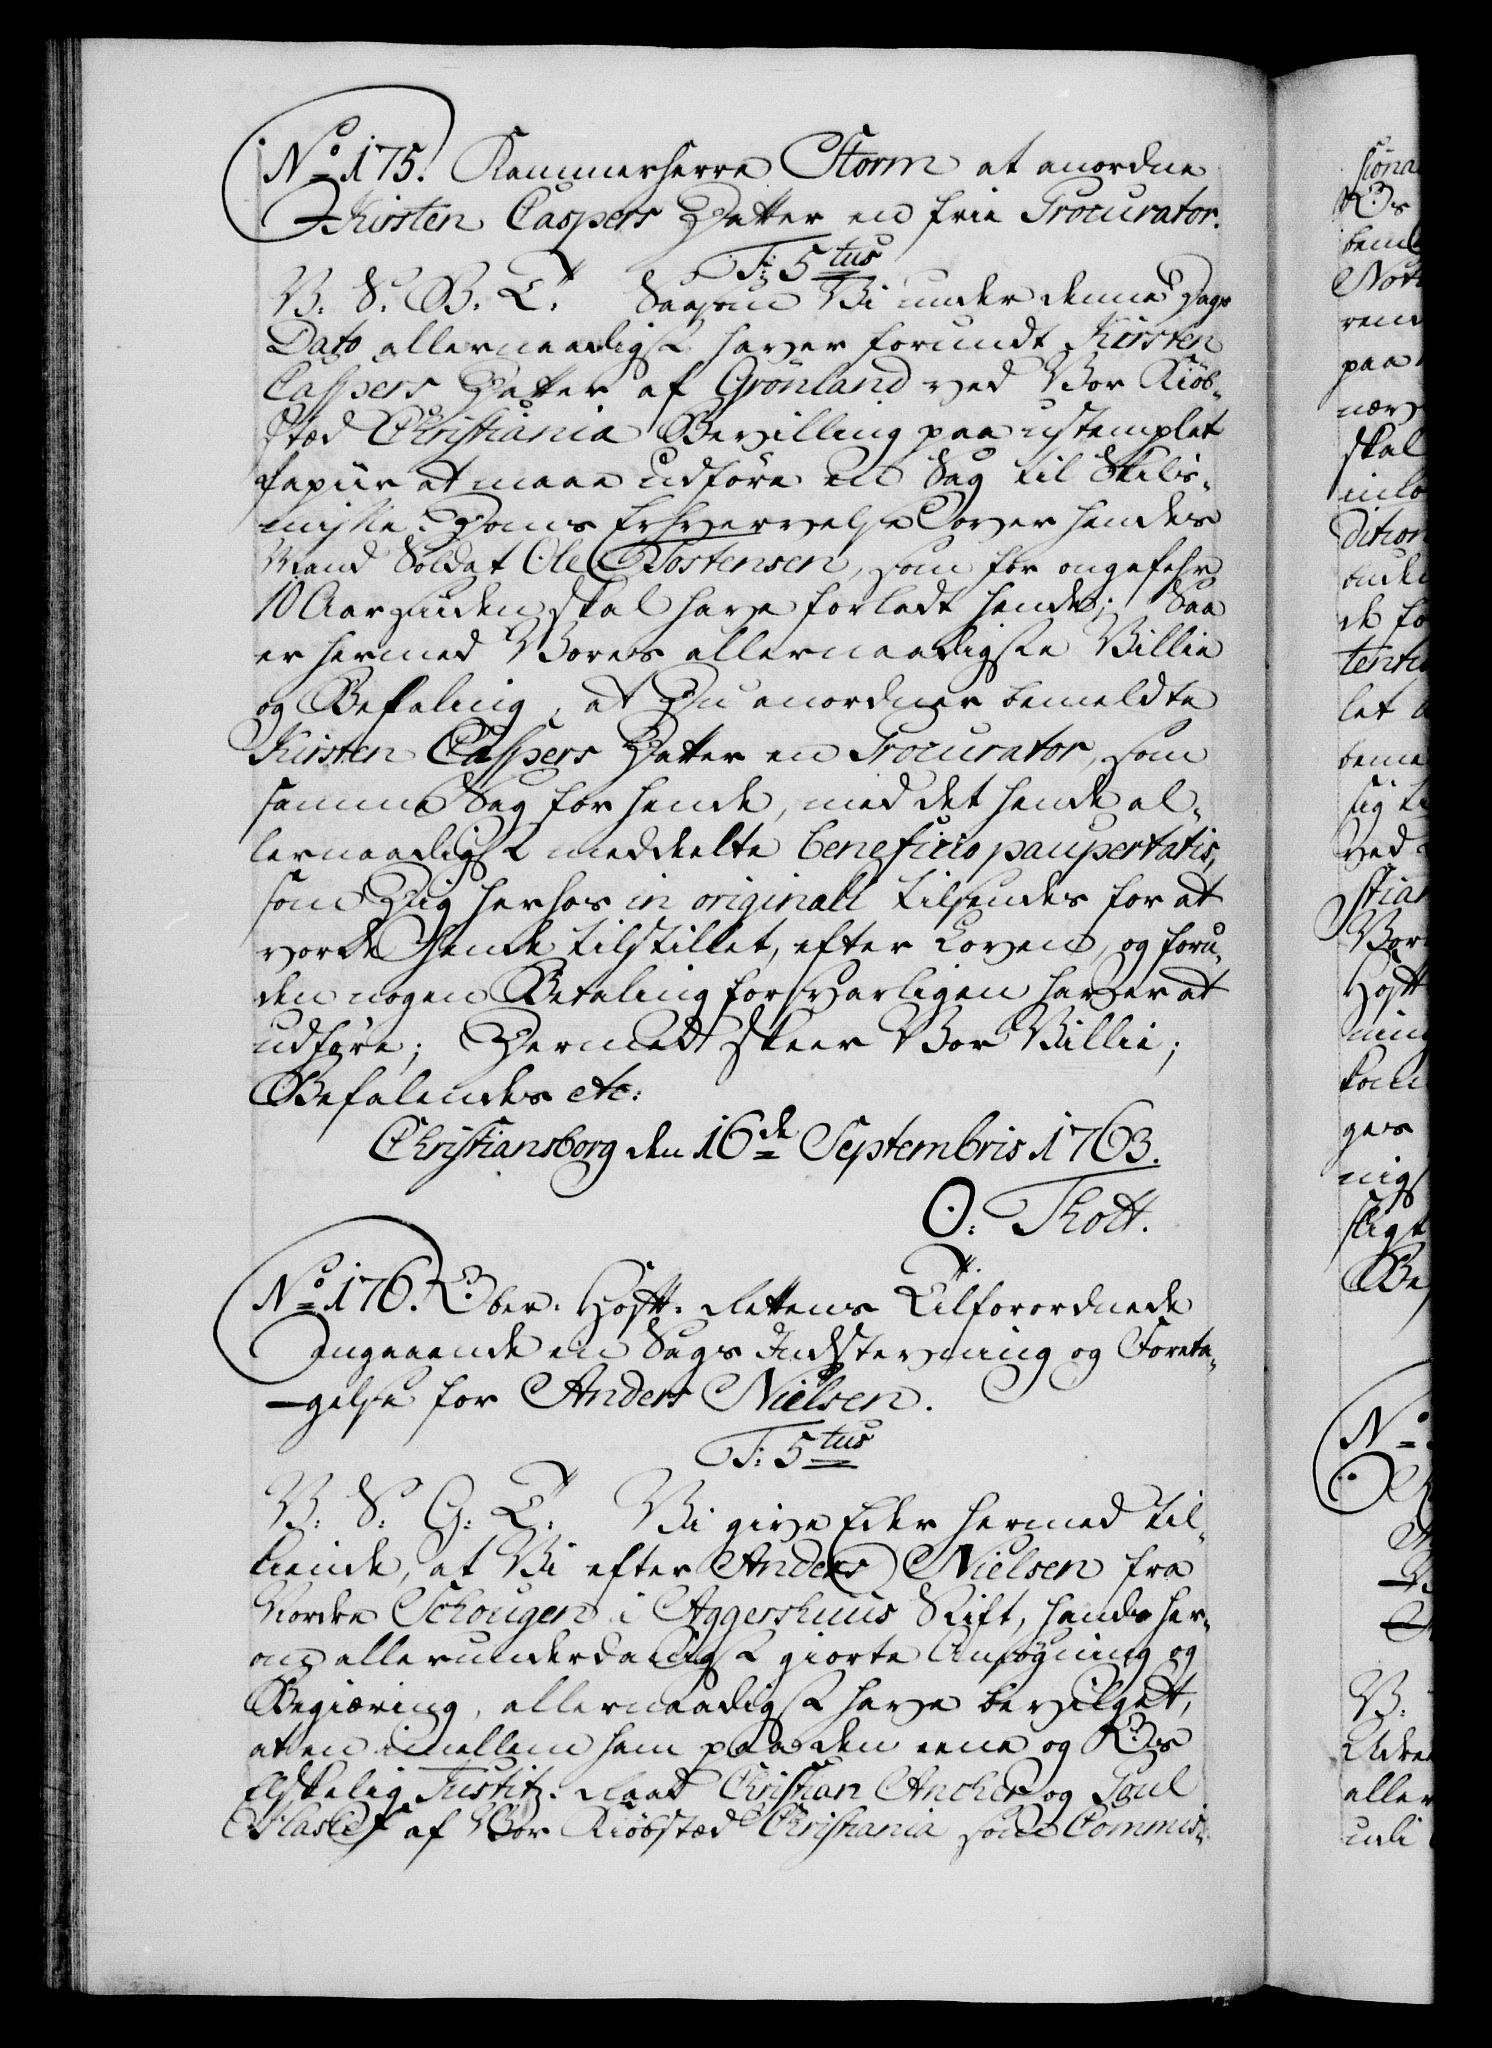 No 175. Kammerherre Storm at anordne
Kirsten Caspers Datter en frie Procurator.
T: 5tus
V. S. G. T. Saasom Vi under denne Dags
Dato allernaadigst haver forundt Kirsten
Caspers Datter af Grønland ved Vor Kiøb-
stæd Christiania Bevilling paa ustemplet
Papiir at maae udføre en Sag til Skils-
misse-Doms Erhvervelse over hendes
Mand Soldat Ole Tostensen, som for ongefehr
10 Aar siden skal have forladt hende; Saa
er hermed Vores allernaadigste Villie
og Befaling, at Du anordner bemeldte
Kirsten Caspers Datter en Procurator, som
samme Sag for hende, med det hende al-
lernaadigst meddeelte beneficio paupertatis,
som Dig herhos in originali tilsendes for at
vorde hende tilstillet, efter Loven, og foru-
den nogen Betaling forsvarligen haver at
udføre; Dermed skeer Vor Villie;
Befalendes etc:
Christiansborg den 16de Septembris 1763.
O. Thott.
No 176. Ober-Hoff-Rettens Tilforordnede
angaaende en Sags Indstevning og Foreta-
gelse for Anders Nielsen.
T: 5tus
V: S: G: T: Vi give Eder hermed til-
kiende, at Vi efter Anders Nielsen fra
Nordre Schougen i Aggershuus Stift, hands her-
om allerunderdanigst giorte Ansøgning og
Begiæring, allernaadigst have bevilget,
at en imellem ham paa den eene og Os
Elskelig Justitz-Raad Christian Ancher og Poul
af Vor Kiøbstæd Christiania som Commis-